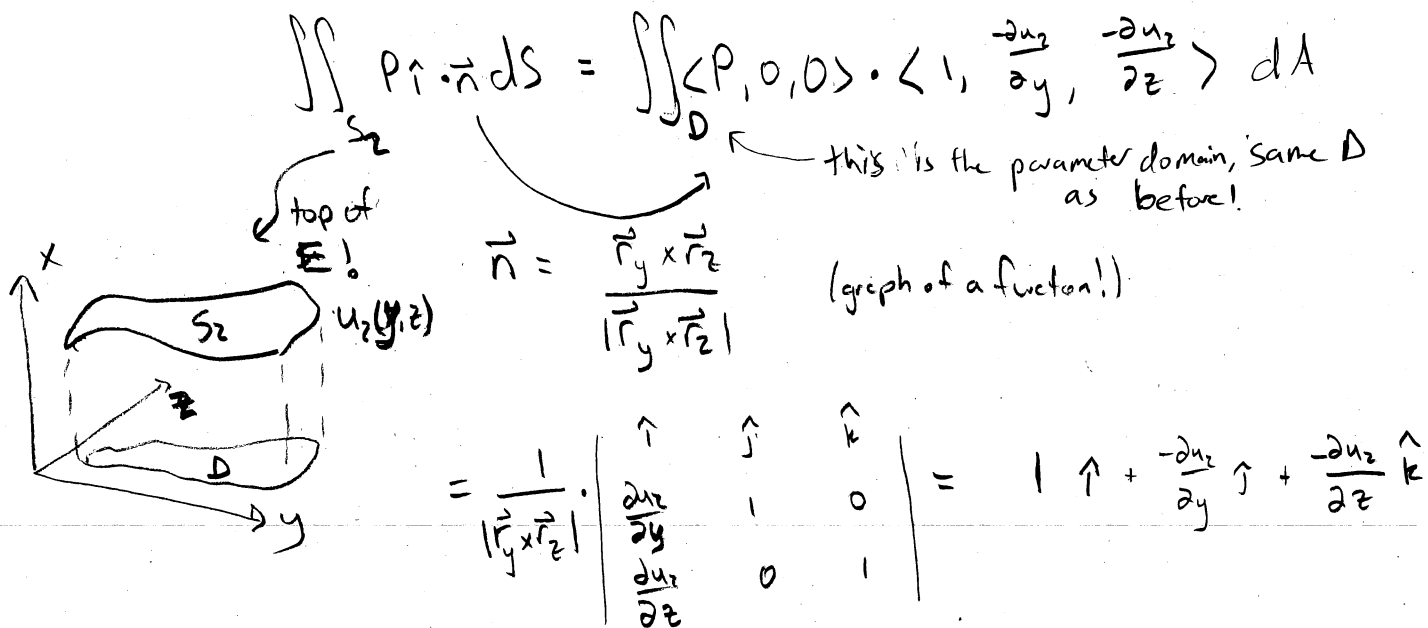 ∬_{S₂} P î · n⃗ dS = ∬_D <P, 0, 0> · <1, -∂u₂/∂y, -∂u₂/∂z> dA
this is the parameter domain, same D
as before!
top of
E!
x
S₂
u₂(y,z)
z
D
y
n⃗ = (r⃗_y × r⃗_z) / |r⃗_y × r⃗_z|
(graph of a function!)
= 1/|r⃗_y × r⃗_z| · | î ĵ k̂ |
| ∂u₂/∂y 1 0 |
| ∂u₂/∂z 0 1 |
= 1 î + -∂u₂/∂y ĵ + -∂u₂/∂z k̂